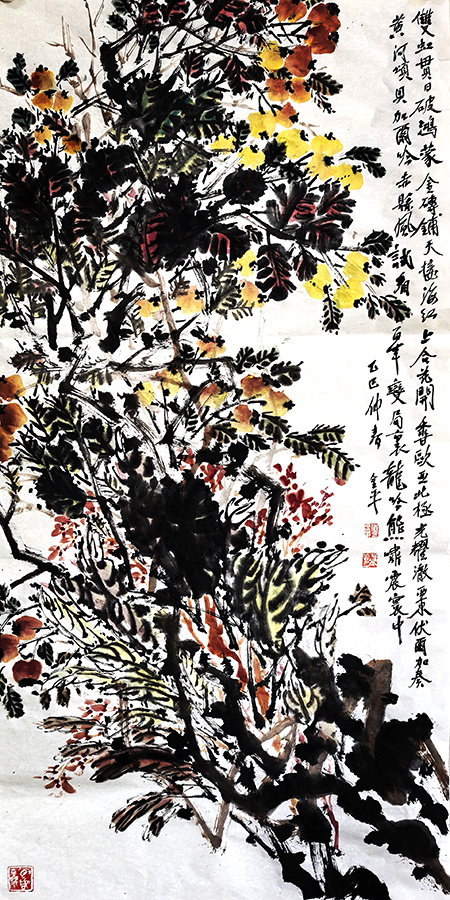 雙虹貫日破鴻蒙金磚鋪天海紅上合花開歐亞北極光耀徹伏爾加奏
黄河頌貝加爾吟赤縣風試看百年變局裏龍吟熊嘯震寰中
乙巳仲春